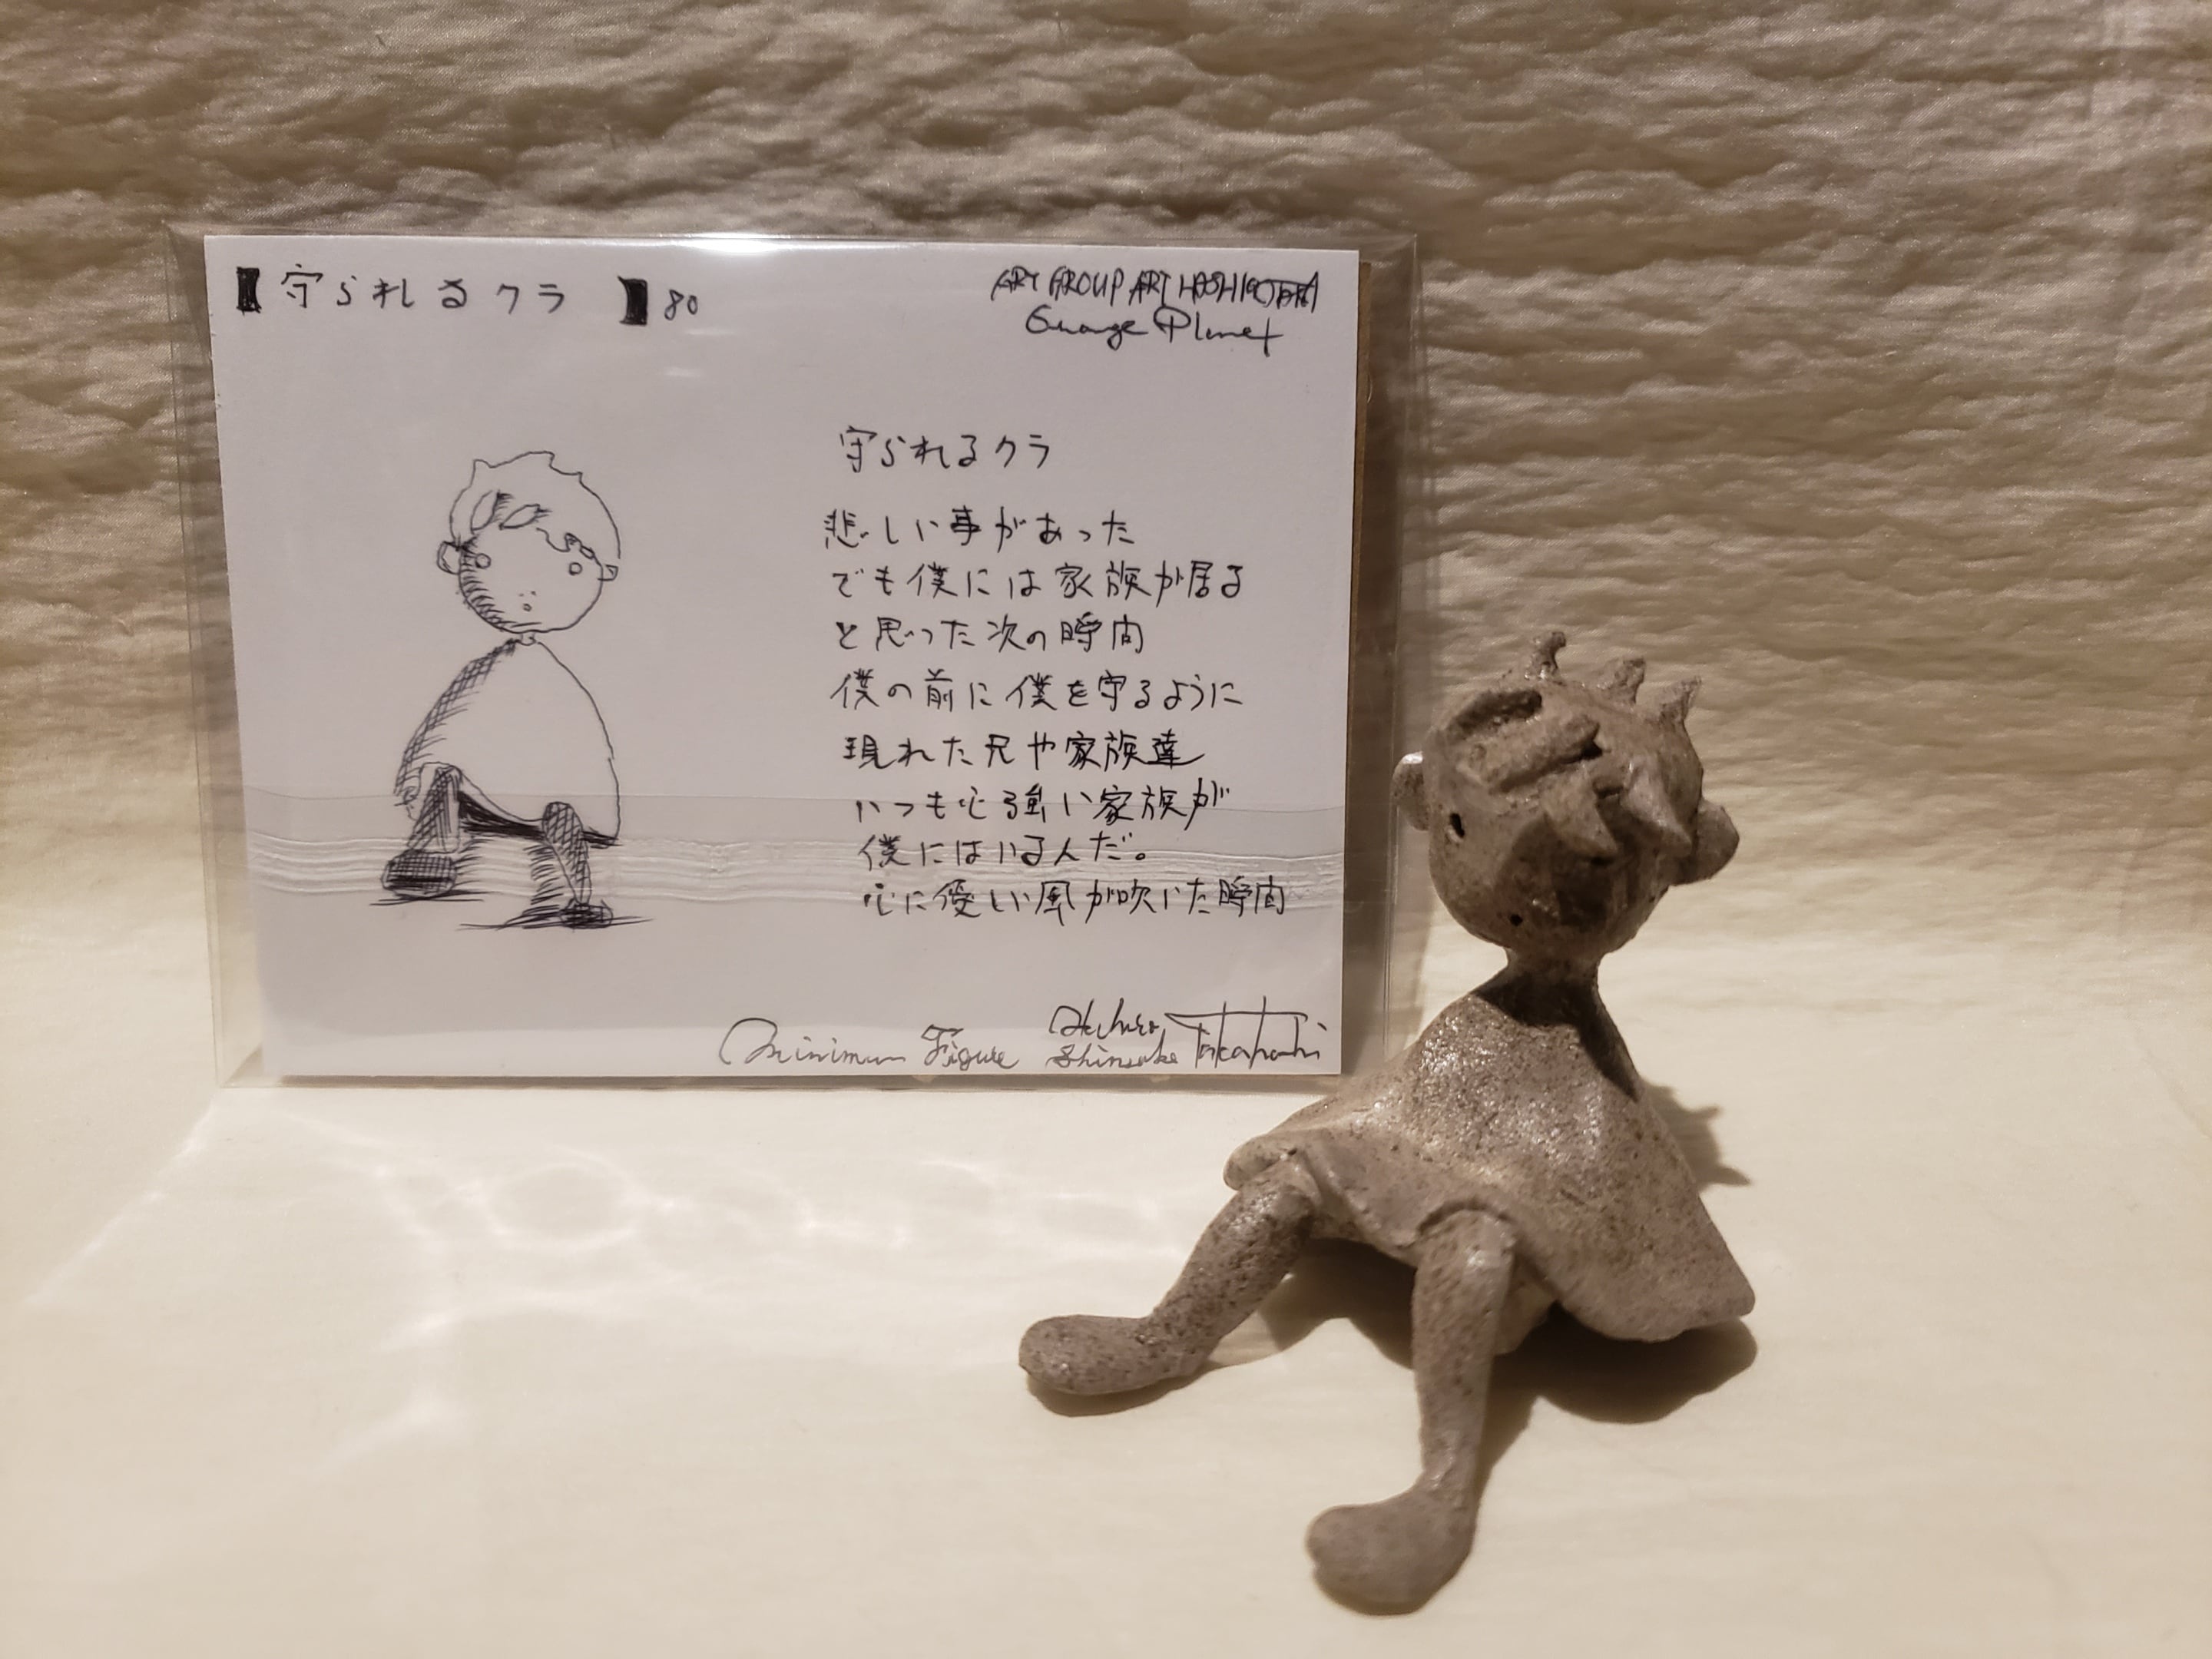 【守られるクラ 】80
ART GROUP ART HASHIGOTAKA
Gunage Planet
守られるクラ
悲しい事があった
でも僕には家族が居る
と思った次の瞬間
僕の前に僕を守るように
現れた兄や家族達
いつも心強い家族が
僕にはいるんだ。
心に優しい風が吹いた瞬間
Minimum Figure
Shinsuke Takahashi